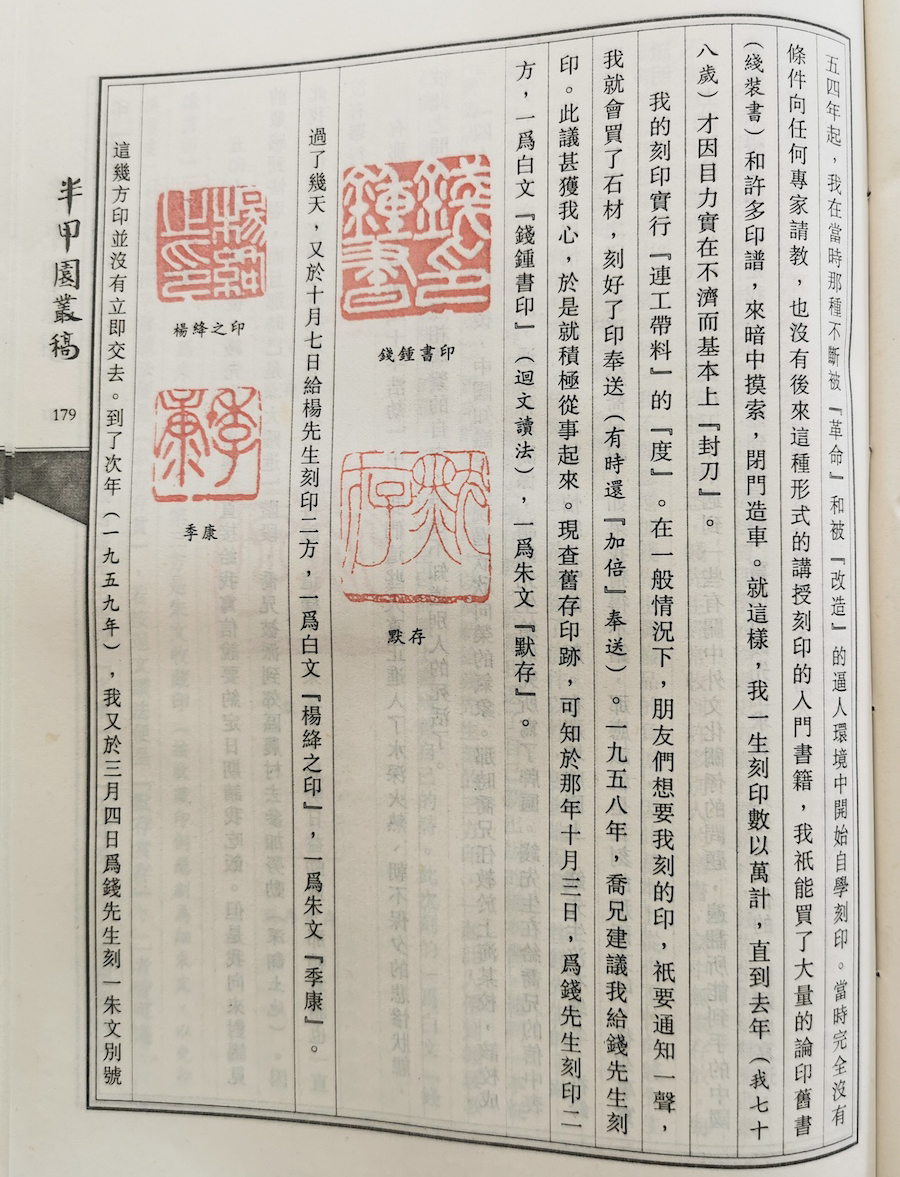 五四年起，我在當時那種不斷被『革命』和被『改造』的逼人環境中開始自學刻印。當時完全沒有
條件向任何專家請教，也沒有後來這種形式的講授刻印的入門書籍，我祇能買了大量的論印舊書
（綫裝書）和許多印譜，來暗中摸索，閉門造車。就這樣，我一生刻印數以萬計，直到去年（我七十
八歲）才因目力實在不濟而基本上『封刀』。
我的刻印實行『連工帶料』的『度』。在一般情況下，朋友們想要我刻的印，祇要通知一聲，
我就會買了石材，刻好了印奉送（有時還『加倍』奉送）。一九五八年，喬兄建議我給錢先生刻
印。此議甚獲我心，於是就積極從事起來。現查舊存印跡，可知於那年十月三日，爲錢先生刻印二
方，一爲白文『錢鍾書印』（迴文讀法），一爲朱文『默存』。
錢印鍾書
錢鍾書印
默存
默存
過了幾天，又於十月七日給楊先生刻印二方，一爲白文『楊絳之印』，一爲朱文『季康』。
楊絳之印
楊絳之印
季康
季康
這幾方印並沒有立即交去。到了次年（一九五九年），我又於三月四日爲錢先生刻一朱文別號
半甲園叢稿
179